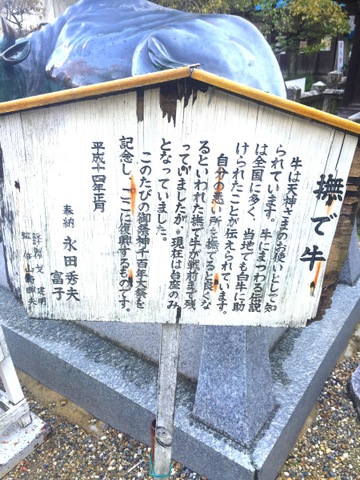 撫で牛
牛は天神さまのお使いとして知
られています。牛にまつわる伝説
は全国に多く、当地でも白牛に助
けられたことが伝えられています。
自分の悪い所を撫でると良くな
るといわれた撫で牛が戦前まで残
っていましたが、現在は台座のみ
となっていました。
このたびの御祭神千百年大祭を
記念し、ここに復興するものです。
平成十四年正月
奉納 永田秀夫
富子